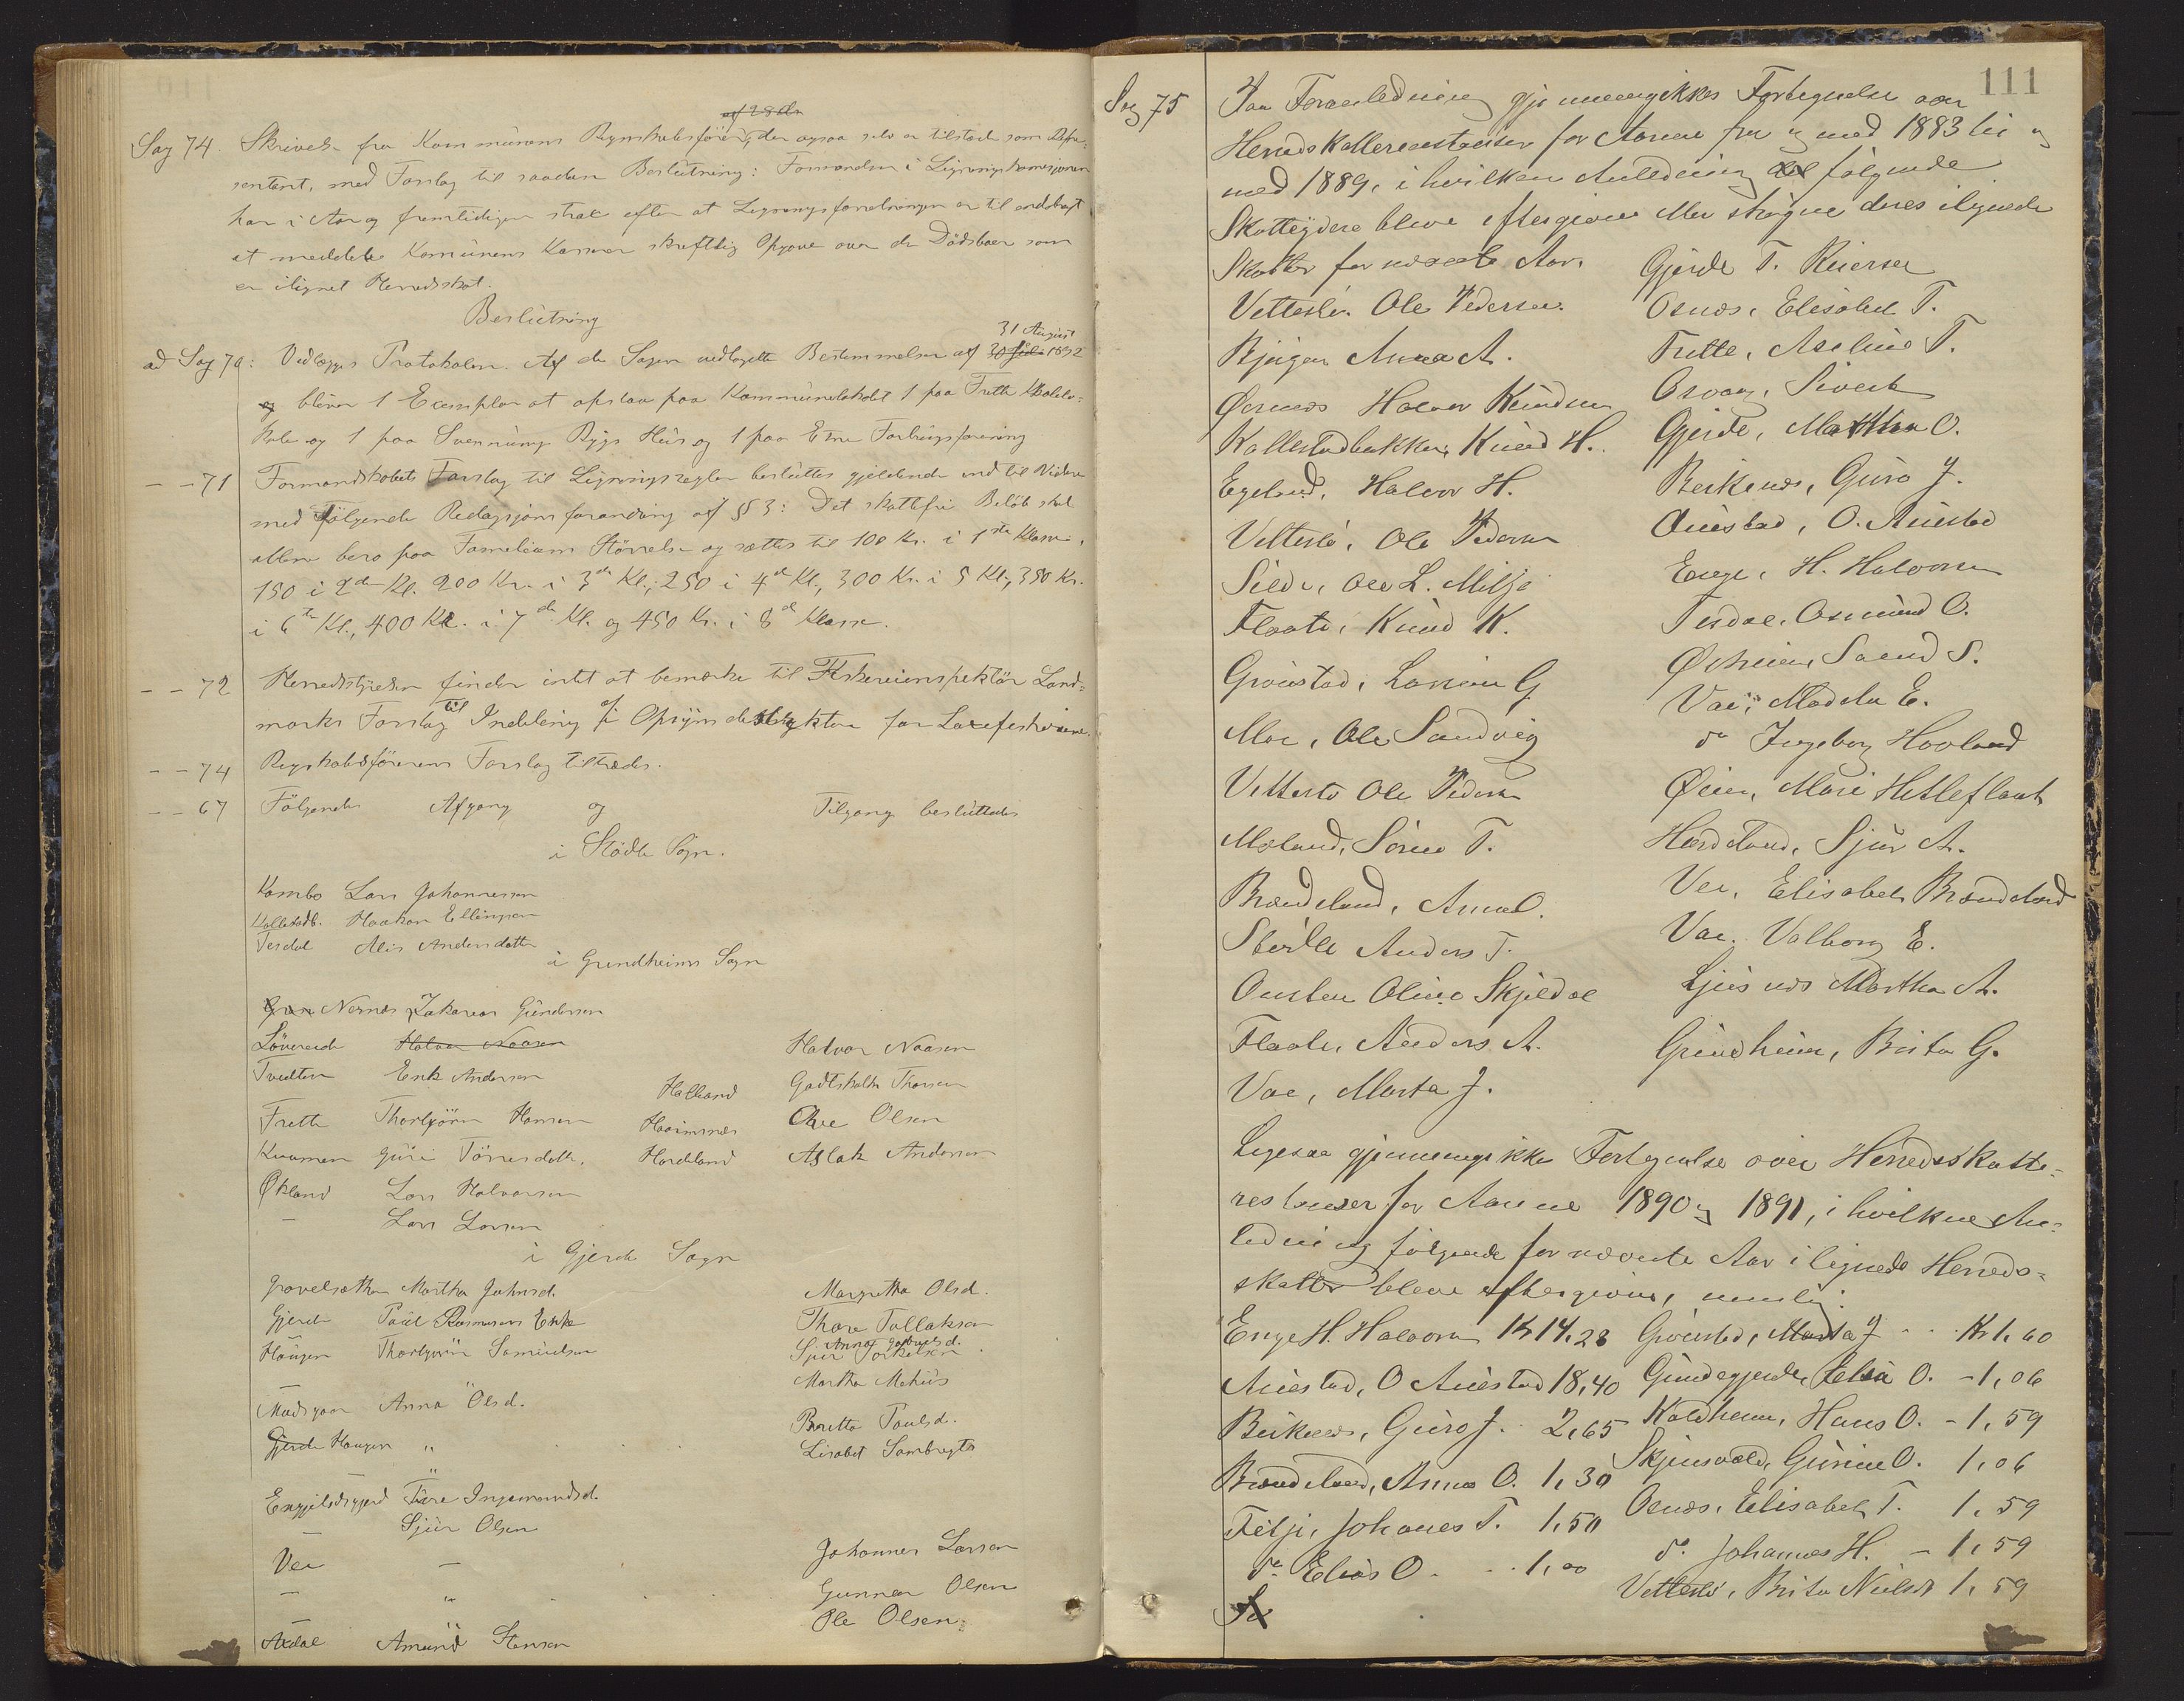 af 28de
Sag 74. Skrivelse fra Kommunens Regnskabsfører, der ogsaa selv er tilstede som Repræ-
sentant, med Forslag til saadan Beslutning: Formanden i Ligningskomisjonen
har i Aar og fremtidigen strax efter at Ligningsforretningen er til endebragt
at meddele Komunens Kasserer skriftlig Opgave over de Dödsboer som
er ilignet Herredsskat.
Beslutning
31 August
ad Sag 70: Vedlægges Protokolen. Af de Sagen vedlagte Bestemmelser af 30 Juli 1892
og bliver 1 Exemplar at opslaa paa Kommunelokalet 1 paa Frette Skolelo-
kale og 1 paa Svennungs Bygs Hus og 1 paa Etne Forbrugsforening
- - 71 Formandskabets Forslag til Ligningsregler besluttes gjeldende ind til Videre
med følgende Redagsjons forandring af § 3: Det skattefri Beløb skal
allene bero paa Familiens Størrelse og sættes til 100 Kr. i 1ste Klasse,
150 i 2den Kl. 200 Kr. i 3de Kl., 250 i 4de Kl., 300 Kr. i 5 Kl., 350 Kr.
i 6te Kl., 400 Kr. i 7de Kl. og 450 Kr. i 8de Klasse.
- - 72 Herredsstyrelsen finder intet at bemærke til Fiskeriinspektör Land-
marks Forslag til Inddeling af Opsynsdistrikter for Laxefiskeriene.
- - 74 Regnskabsførerens Forslag tiltrædes.
- - 67 Følgende Afgang og Tilgang besluttedes
i Stødle Sogn.
Kambo Lars Johannesen
Kallestadb. Haakon Ellingsen
Tesdal Alis Andersdatter
i Grindheims Sogn
Nernes Zakarias Gundersen
Løvereide Halvor Naasen Halvor Naasen
Tvedten Erik Andersen Halleland Godtskalk Thorsen
Frette Thorbjørn Hansen Haaimnes Ove Olsen
Kvamen Guri Tørresdatter. Hardeland Aslak Andersen
Økland Lars Halvorsen
- Lars Larsen
i Gjerde Sogn
Grovelsæther Martha Johnsd. Margretha Olsd.
Gjerde Paul Rasmusens Enke Thore Tollaksen
Anna Gabrielsd.
Haugen Thorbjørn Samuelsen Sjur Torkelsen
Martha Mehus
Madsgaar Anna Olsd.
Gjerde Haugen " Boretta Paulsd.
Lisabet Sambrigts
Engjelsgjerd Tore Ingemundsd.
- Sjur Olsen
Vee - Johannes Larsen
- " Gunnar Olsen
- " Ole Olsen
Axdal Amund Stensen
111
Sag 75 Paa Foranledning gjennemgikkes Fortegnelse over
Herredskatterestanser for Aarene fra og med 1883 til og
med 1889, i hvilken Anledning følgende
Skatteydere bleve eftergivne eller strøgne deres ilignede
Skatter for nævnte Aar.
Vettestø. Ole Pedersen. Gjerde T. Reiersen
Bjørgen Anna A. Osnes, Elisabet T.
Øernes Halvor Knudsen Frette, Aseline T.
Kallestadbakken, Knud H. Osvaag, Sivert
Egelsud, Halvor H. Gjerde, Martha O.
Vettestø, Ole Pedersen Birkenes, Guro J.
Silde, Ole L. Milje Austad, O. Austad
Flaate, Knud K. Enge, H. Halvorsen
Grønstad, Larsine G. Tesdal, Osmund O.
Moe, Ole Sandvig Øiheim, Svend S.
Vettestø Ole Pedersen Vae, Madela E.
Moland, Sørine T. do Ingeborg Hovland
Brændeland, Anna O. Øien, Mari Hetleflaat
Støle Anders T. Hardeland, Sjur A.
Onsten Oline Skjeldal Vee, Elisabeth Brændeland
Flaate, Anders A. Vae. Valborg E.
Vae, Marta J. Ljusnes Martha A.
Grindheim, Brita G.
Ligesaa gjennemgikkes Fortegnelse over Herredsskatte-
restanser for Aarene 1890 og 1891, i hvilken An-
ledning følgende for nævnte Aar ilignede Herreds-
skatter bleve eftergivne, nemlig:
Enge H. Halvorsen Kr 14,28 Grønstad, Marta J - - Kr 1,60
Austad, O Austad 18,40 Grindegjerde, Elsa O. - 1,06
Birkenes, Guro J. 2,65 Kaldheim, Hans O. - 1,59
Brændeland, Anna O. 1,30 Skjensvold, Gurine O. 1,06
Fitje, Johanes T. 1,50 Osnes, Elisabet T. 1,59
do Elias O - - 1,00 do. Johannes H. - 1,59
Vettestø, Brita Nielsd 1,59